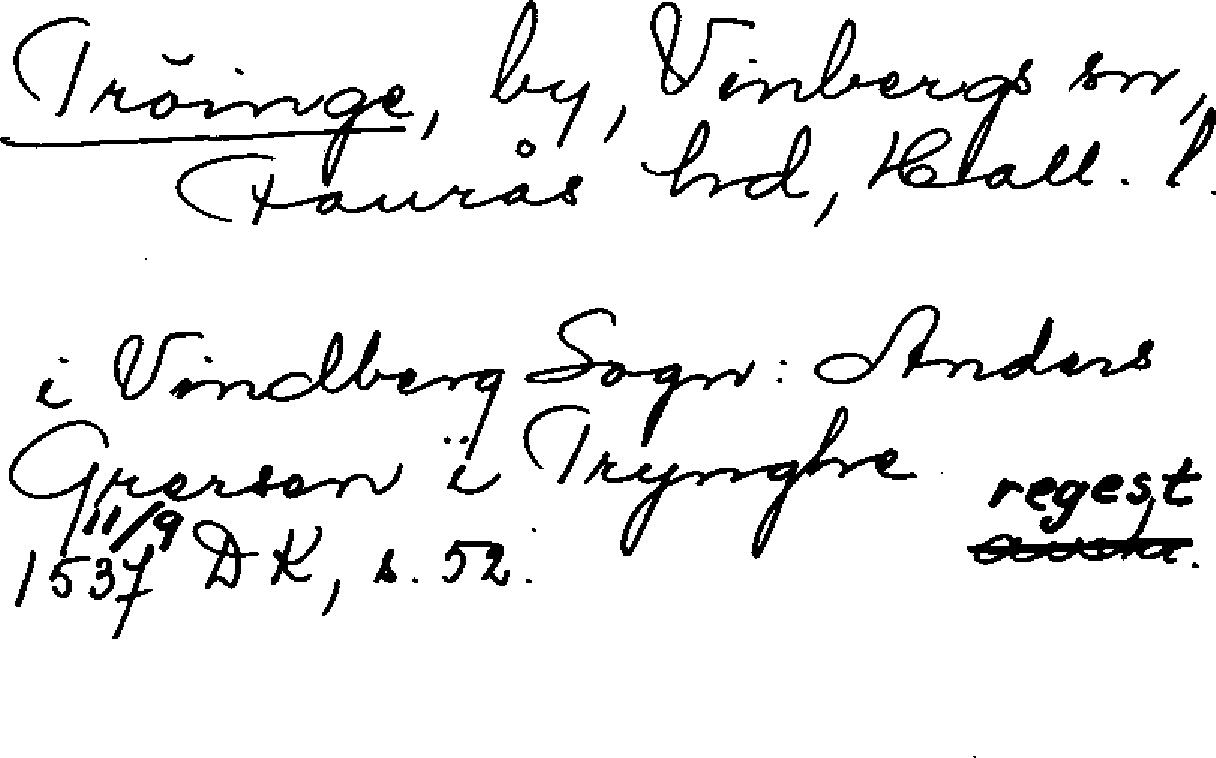 Tröinge, by, Vinbergs sn,
Faurås hrd, Hall. l.
i Vindberg Sogn: Anders
Grersen i Trynghe
regest
11/9
1537 DK, s. 52.